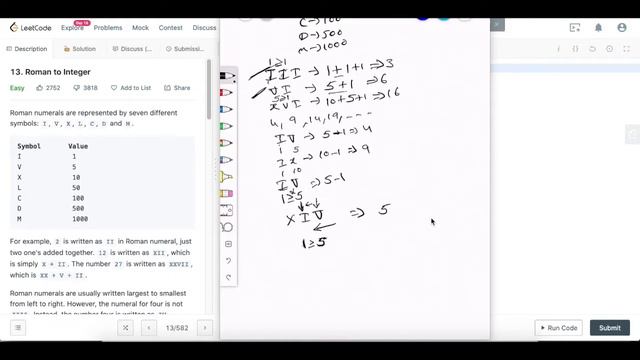 LeetCode
Day 16
Explore
Problems
Mock
Contest
Description
Solution
Discuss (999+)
Submissi...
13. Roman to Integer
Easy
2752
3818
Add to List
Share
Roman numerals are represented by seven different
symbols: I, V, X, L, C, D and M.
Symbol Value
I 1
V 5
X 10
L 50
C 100
D 500
M 1000
For example, 2 is written as II in Roman numeral, just
two one's added together. 12 is written as XII, which is
simply X + II. The number 27 is written as XXVII,
which is XX + V + II.
Roman numerals are usually written largest to smallest
from left to right. However, the numeral for four is not
Problems
Pick One
< Prev
13/582
Next >
C→100
D→500
M→1000
1≥1
III → 1+1+1 ⇒ 3
VI → 5+1 ⇒ 6
5≥1
XVI → 10+5+1 ⇒ 16
4, 9, 14, 19, ....
IV → 5-1 ⇒ 4
1 5
IX → 10-1 ⇒ 9
1 10
IV ⇒ 5-1
1≥5
XIV ⇒ 5
1≥5
Run Code
Submit